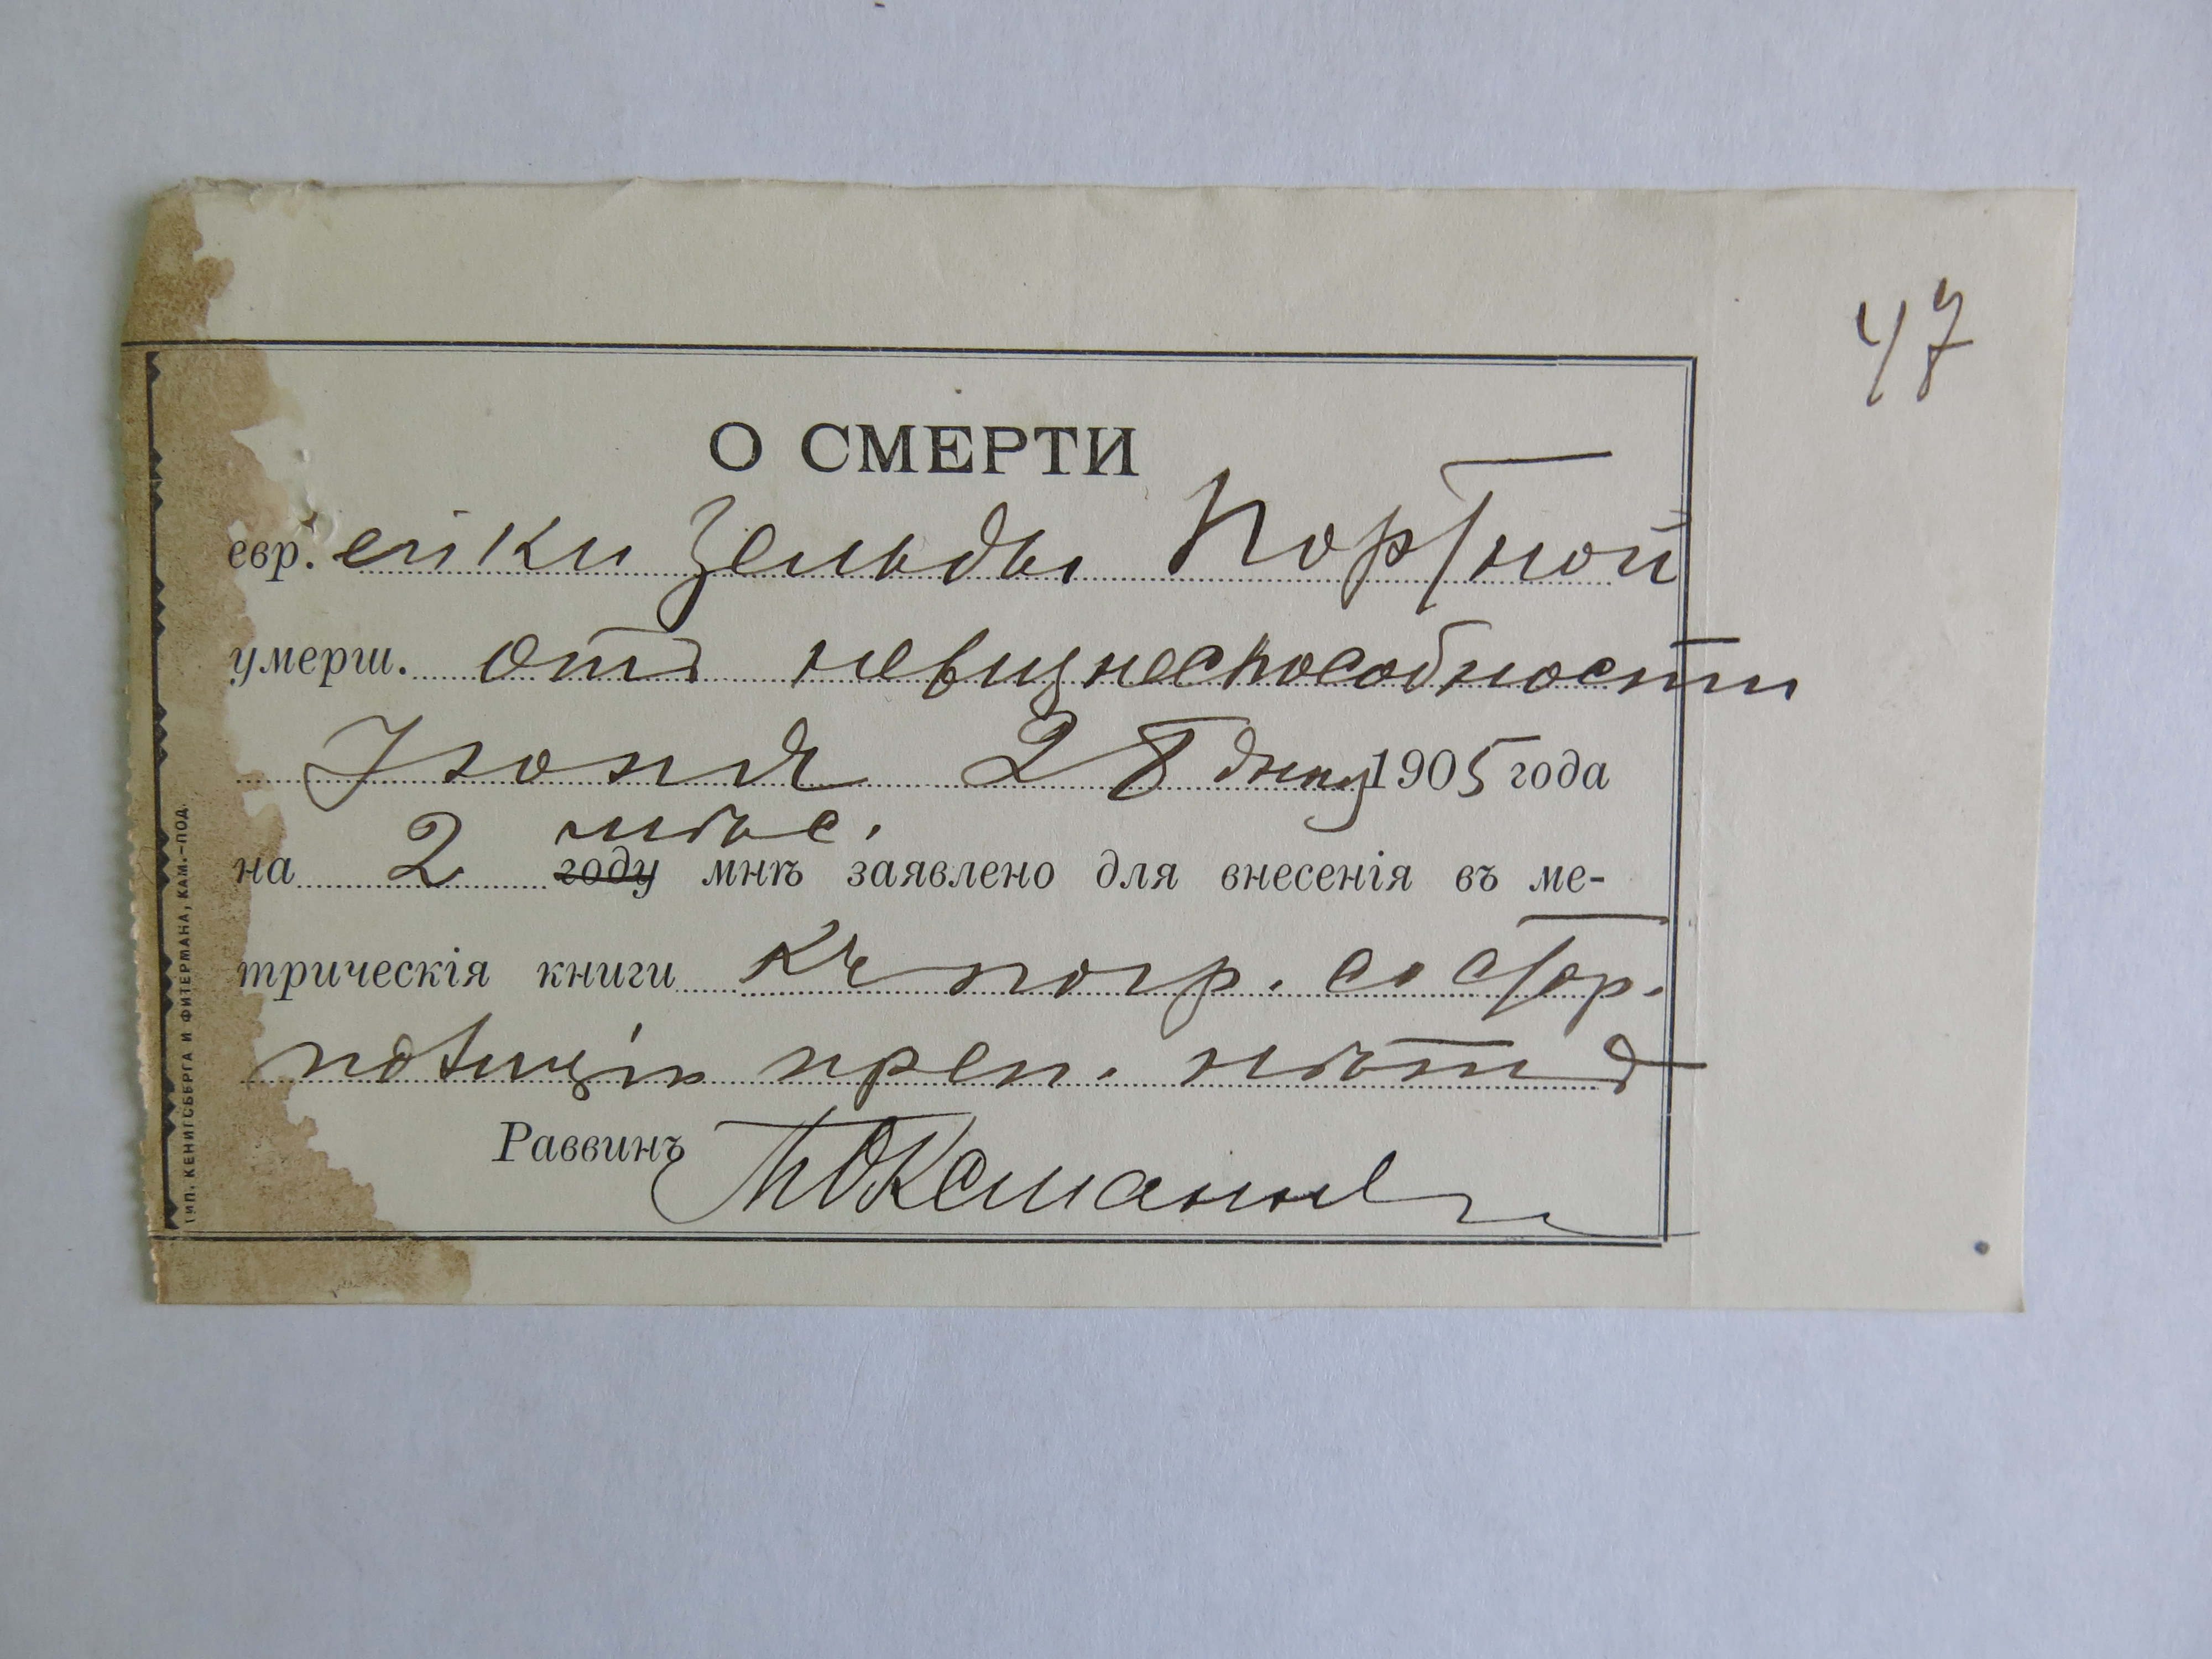 47
О СМЕРТИ
евр. ейки Зельды Портной
умерш. отъ нежизнеспособности
Июня 28 дня 1905 года
мѣс.
на 2 году мнѣ заявлено для внесенія въ ме-
трическія книги къ погр. со стор.
полиціи преп. нѣтъ
Раввинъ
ТИП. КЕНИГСБЕРГА И ФИТЕРМАНА, КАМ.-ПОД.